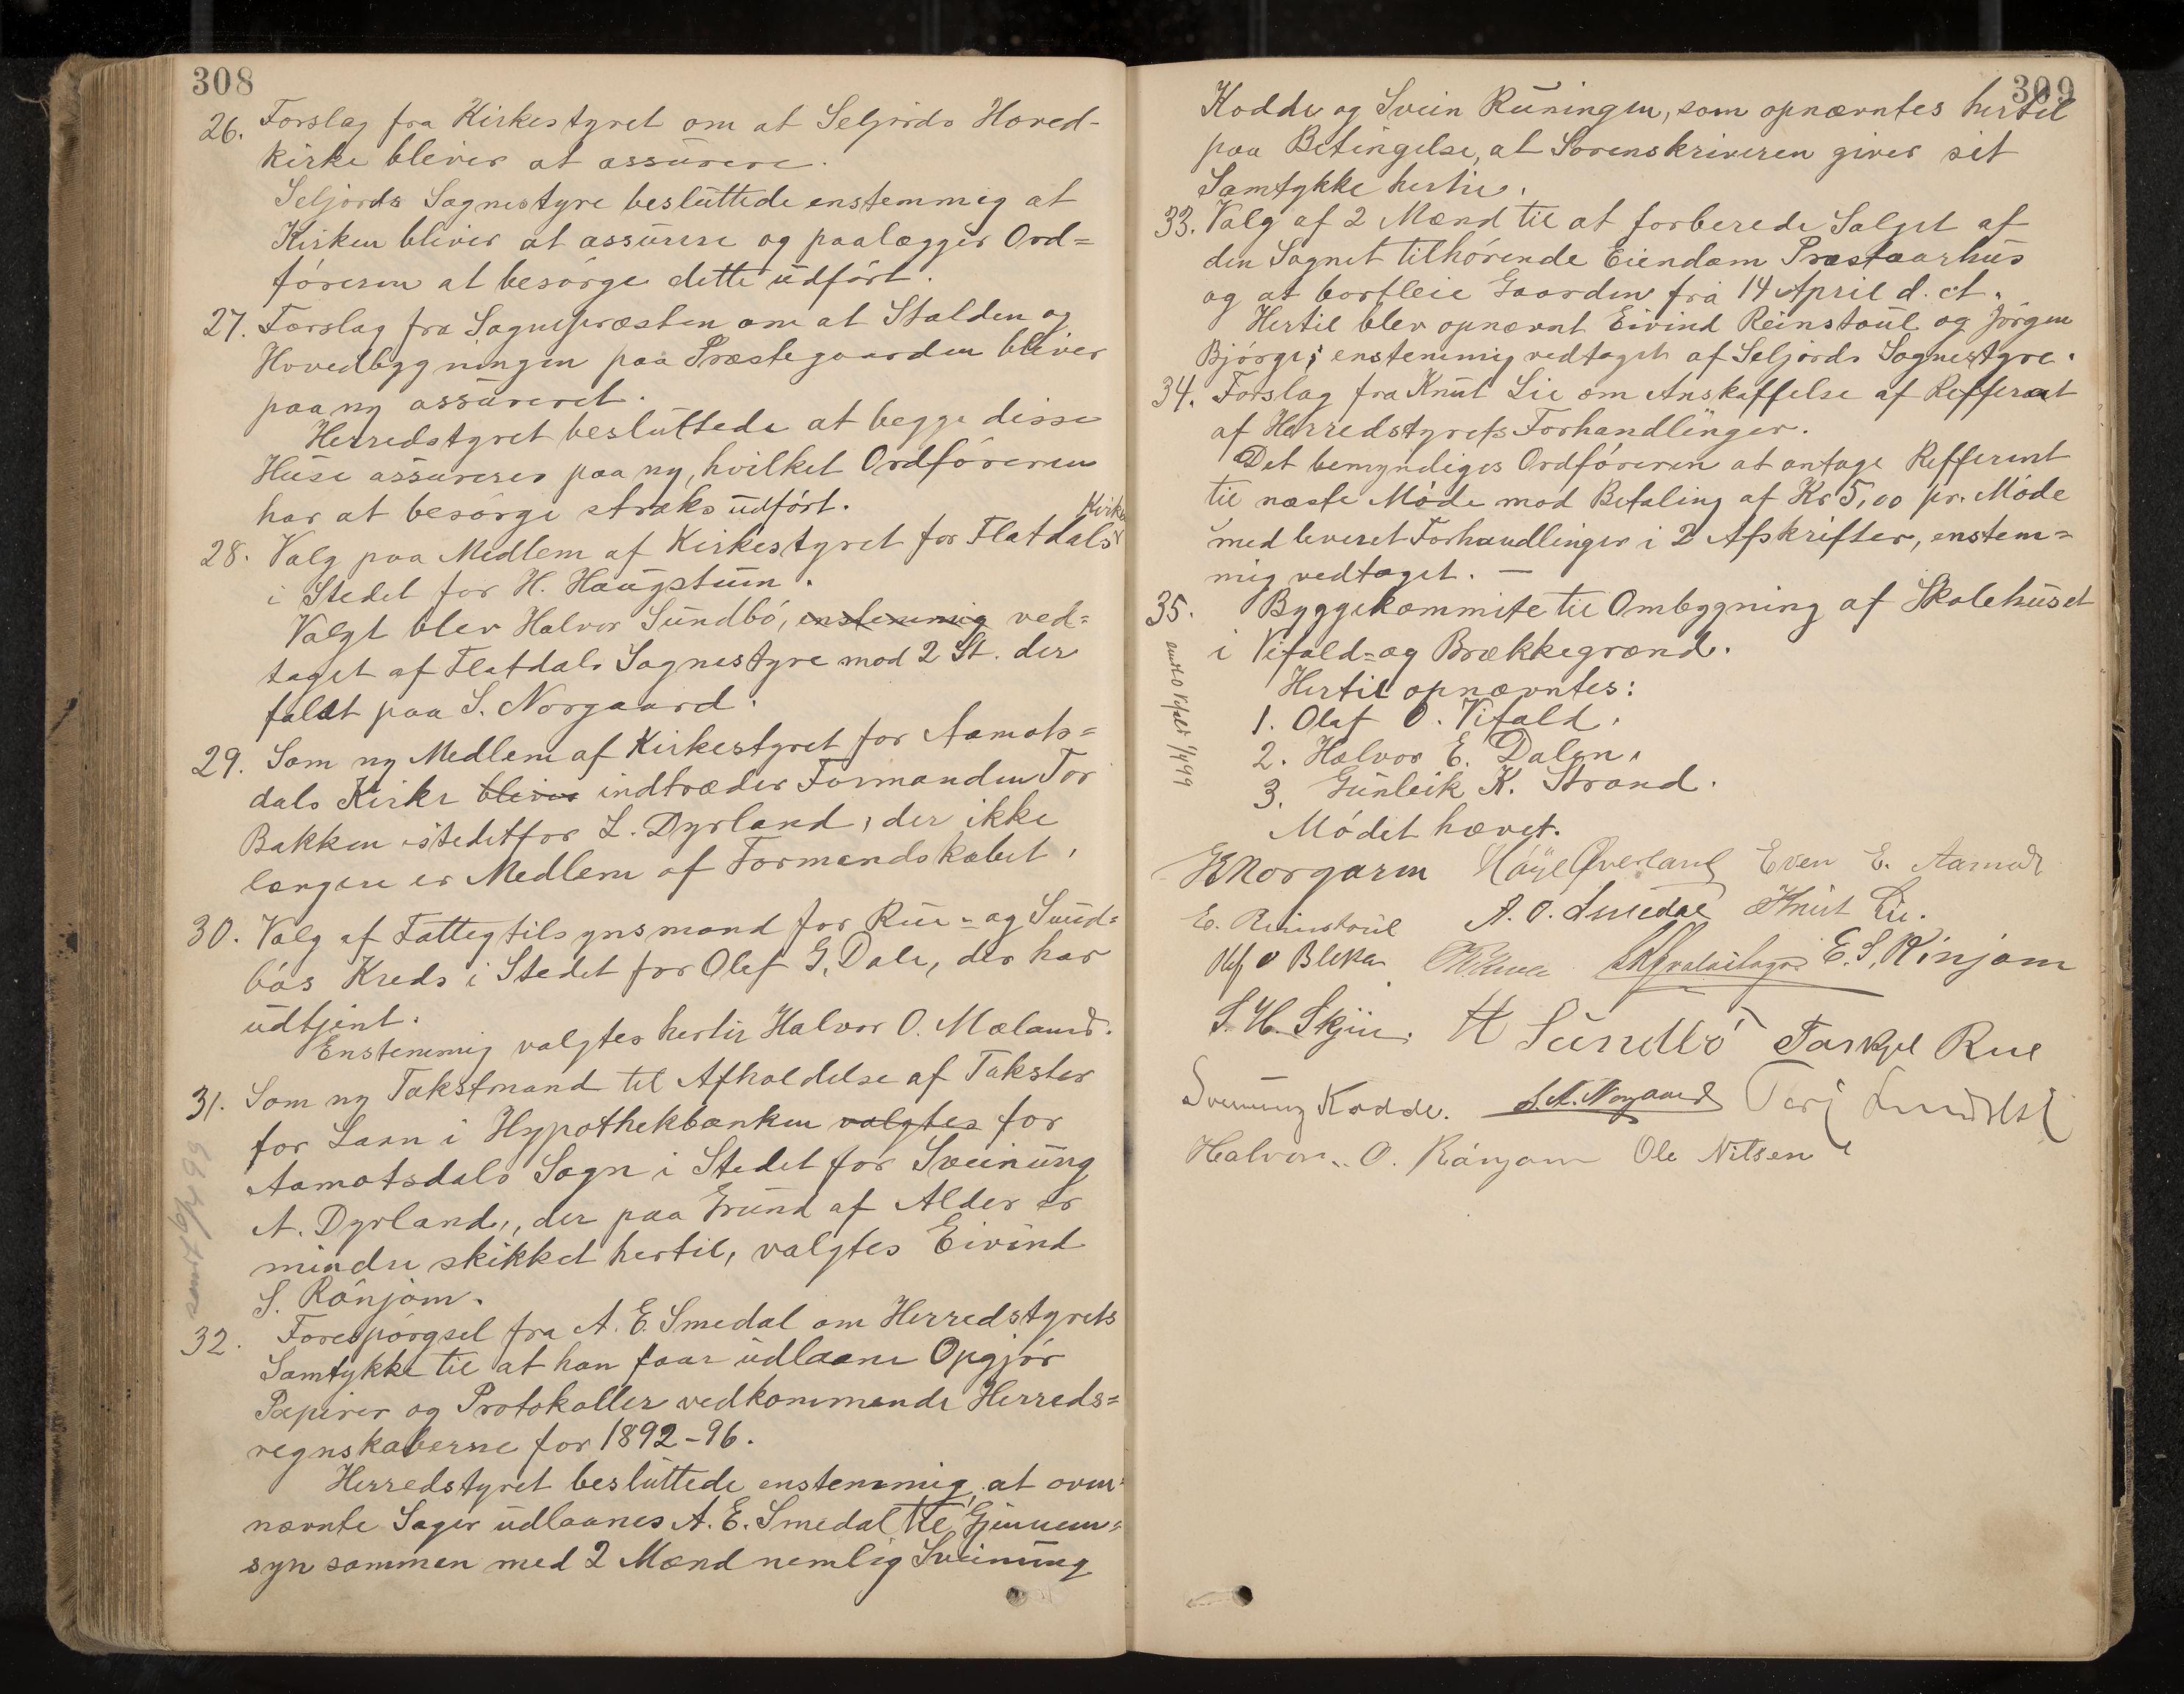 308
26. Forslag fra Kirkestyret om at Seljords Hoved-
kirke bliver at assurere.
Seljords Sognestyre besluttede enstemmig at
Kirken bliver at assurere og paalægger Ord=
føreren at besørge dette udført.
27. Forslag fra Sognepræsten om at Stalden og
Hovedbygningen paa Præstegaarden bliver
paa ny assureret.
Herredstyret besluttede at begge disse
Huse assureres paa ny, hvilket Ordføreren
har at besørge straks udført.
28. Valg paa Medlem af Kirkestyret for Flatdals Kirke
i Stedet for H. Haugstuin.
Valgt blev Halvor Sundbø, enstemmig ved=
taget af Flatdals Sognestyre mod 2 St. der
faldt paa S. Norgaard.
29. Som ny Medlem af Kirkestyret for Aamots=
dals Kirke bliver indtræder Formanden Tor
Bakken istedetfor L. Dyrland, der ikke
længere er Medlem af Formandskabet.
30. Valg af Fattigtilsynsmand for Rue- og Sund=
bøs Kreds i Stedet for Olef G. Dale, der har
udtjent.
Enstemmig valgtes hertil Halvor O. Mæland.
31. Som ny Takstmand til Afholdelse af Takster
for Laan i Hypothekbanken valgtes for
Aamotsdals Sogn i Stedet for Sveinung
A. Dyrland, der paa Grund af Alder er
mindre skikket hertil, valgtes Eivind
S. Rønjom.
sendt 16/4 99
32. Forespørgsel fra A. E. Smedal om Herredstyrets
Samtykke til at han faar udlaane Opgjør
Papirer og Protokoller vedkommende Herreds=
regnskaberne for 1892-96.
Herredstyret besluttede enstemmig, at oven=
nævnte Sager udlaanes A. E. Smedal til Gjennem=
syn sammen med 2 Mænd nemlig Sveinung
309
Kodde og Svein Runingen, som opnævntes hertil
paa Betingelse, at Sorenskriveren giver sit
Samtykke hertil.
33. Valg af 2 Mænd til at forberede Salget af
den Sognet tilhørende Eiendom Præstaarhus
og at bortleie Gaarden fra 14 April d. ct.
Hertil blev opnævnt Eivind Reinstoul og Jørgen
Bjørge; enstemmig vedtaget af Seljords Sognestyre.
34. Forslag fra Knut Lie om Anskaffelse af Refferent
af Herredstyrets Forhandlinger.
Det bemyndiges Ordføreren at antage Refferent
til næste Møde mod Betaling af Kr 5,00 pr. Møde
med leveret Forhandlinger i 2 Afskrifter, enstem=
mig vedtaget. —
35. Byggekommite til Ombygning af Skolehuset
i Vefald- og Brækkegrænd.
Hertil opnævntes:
1. Olaf O. Vefald.
2. Halvor E. Dalen.
3. Gunleik K. Strand.
Mødet hævet.
Vefald 1/4 99
Norgaren Høye Øverland Even E. Aamot
E. Reinstoul A. O. Smedal Knut Lie.
Olef O Bleka E. S. Rønjom
S. H. Skjin. H Sundbø Torkjel Rue
Sveinung Kodde. S. A. Norgaard Terj
Halvor O. Rønjom Ole Nilsen